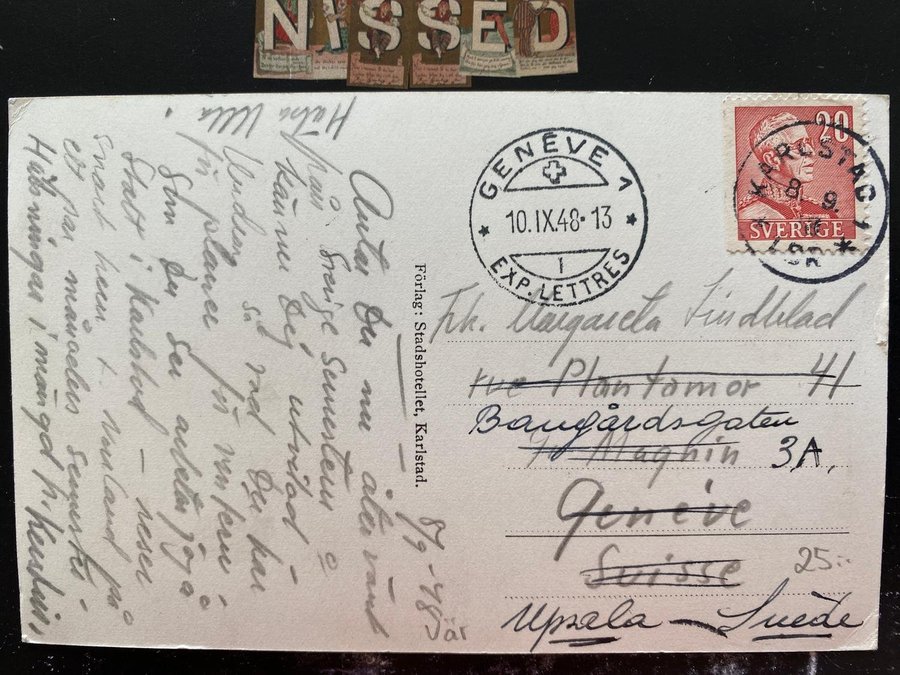 NISSED
GENÈVE 1
10.IX.48-13
1
EXP. LETTRES
20
SVERIGE
KARLSTAD 1
8 9
48
LBR
Margareta Lindblad
rue Plantamor 41
Bangårdsgatan
3A,
Genève
Suisse
25:-
Upsala - Suède
Förlag: Stadshotellet, Karlstad.
8/9 -48
är
Antar Du nu åter vänt
från Sverige semestern o
känner Dig utvilad
Undrar så vad Du har
för planer för vintern
Som Du ser arbetar jag å
Statt i Karlstad — reser
snart hem t. på
ett par månaders
Hälsningar i mängd fr. Kerstin
Hälsa Ulla!